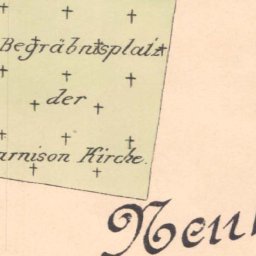 Begräbnisplatz
der
arnison Kirche.
Neu